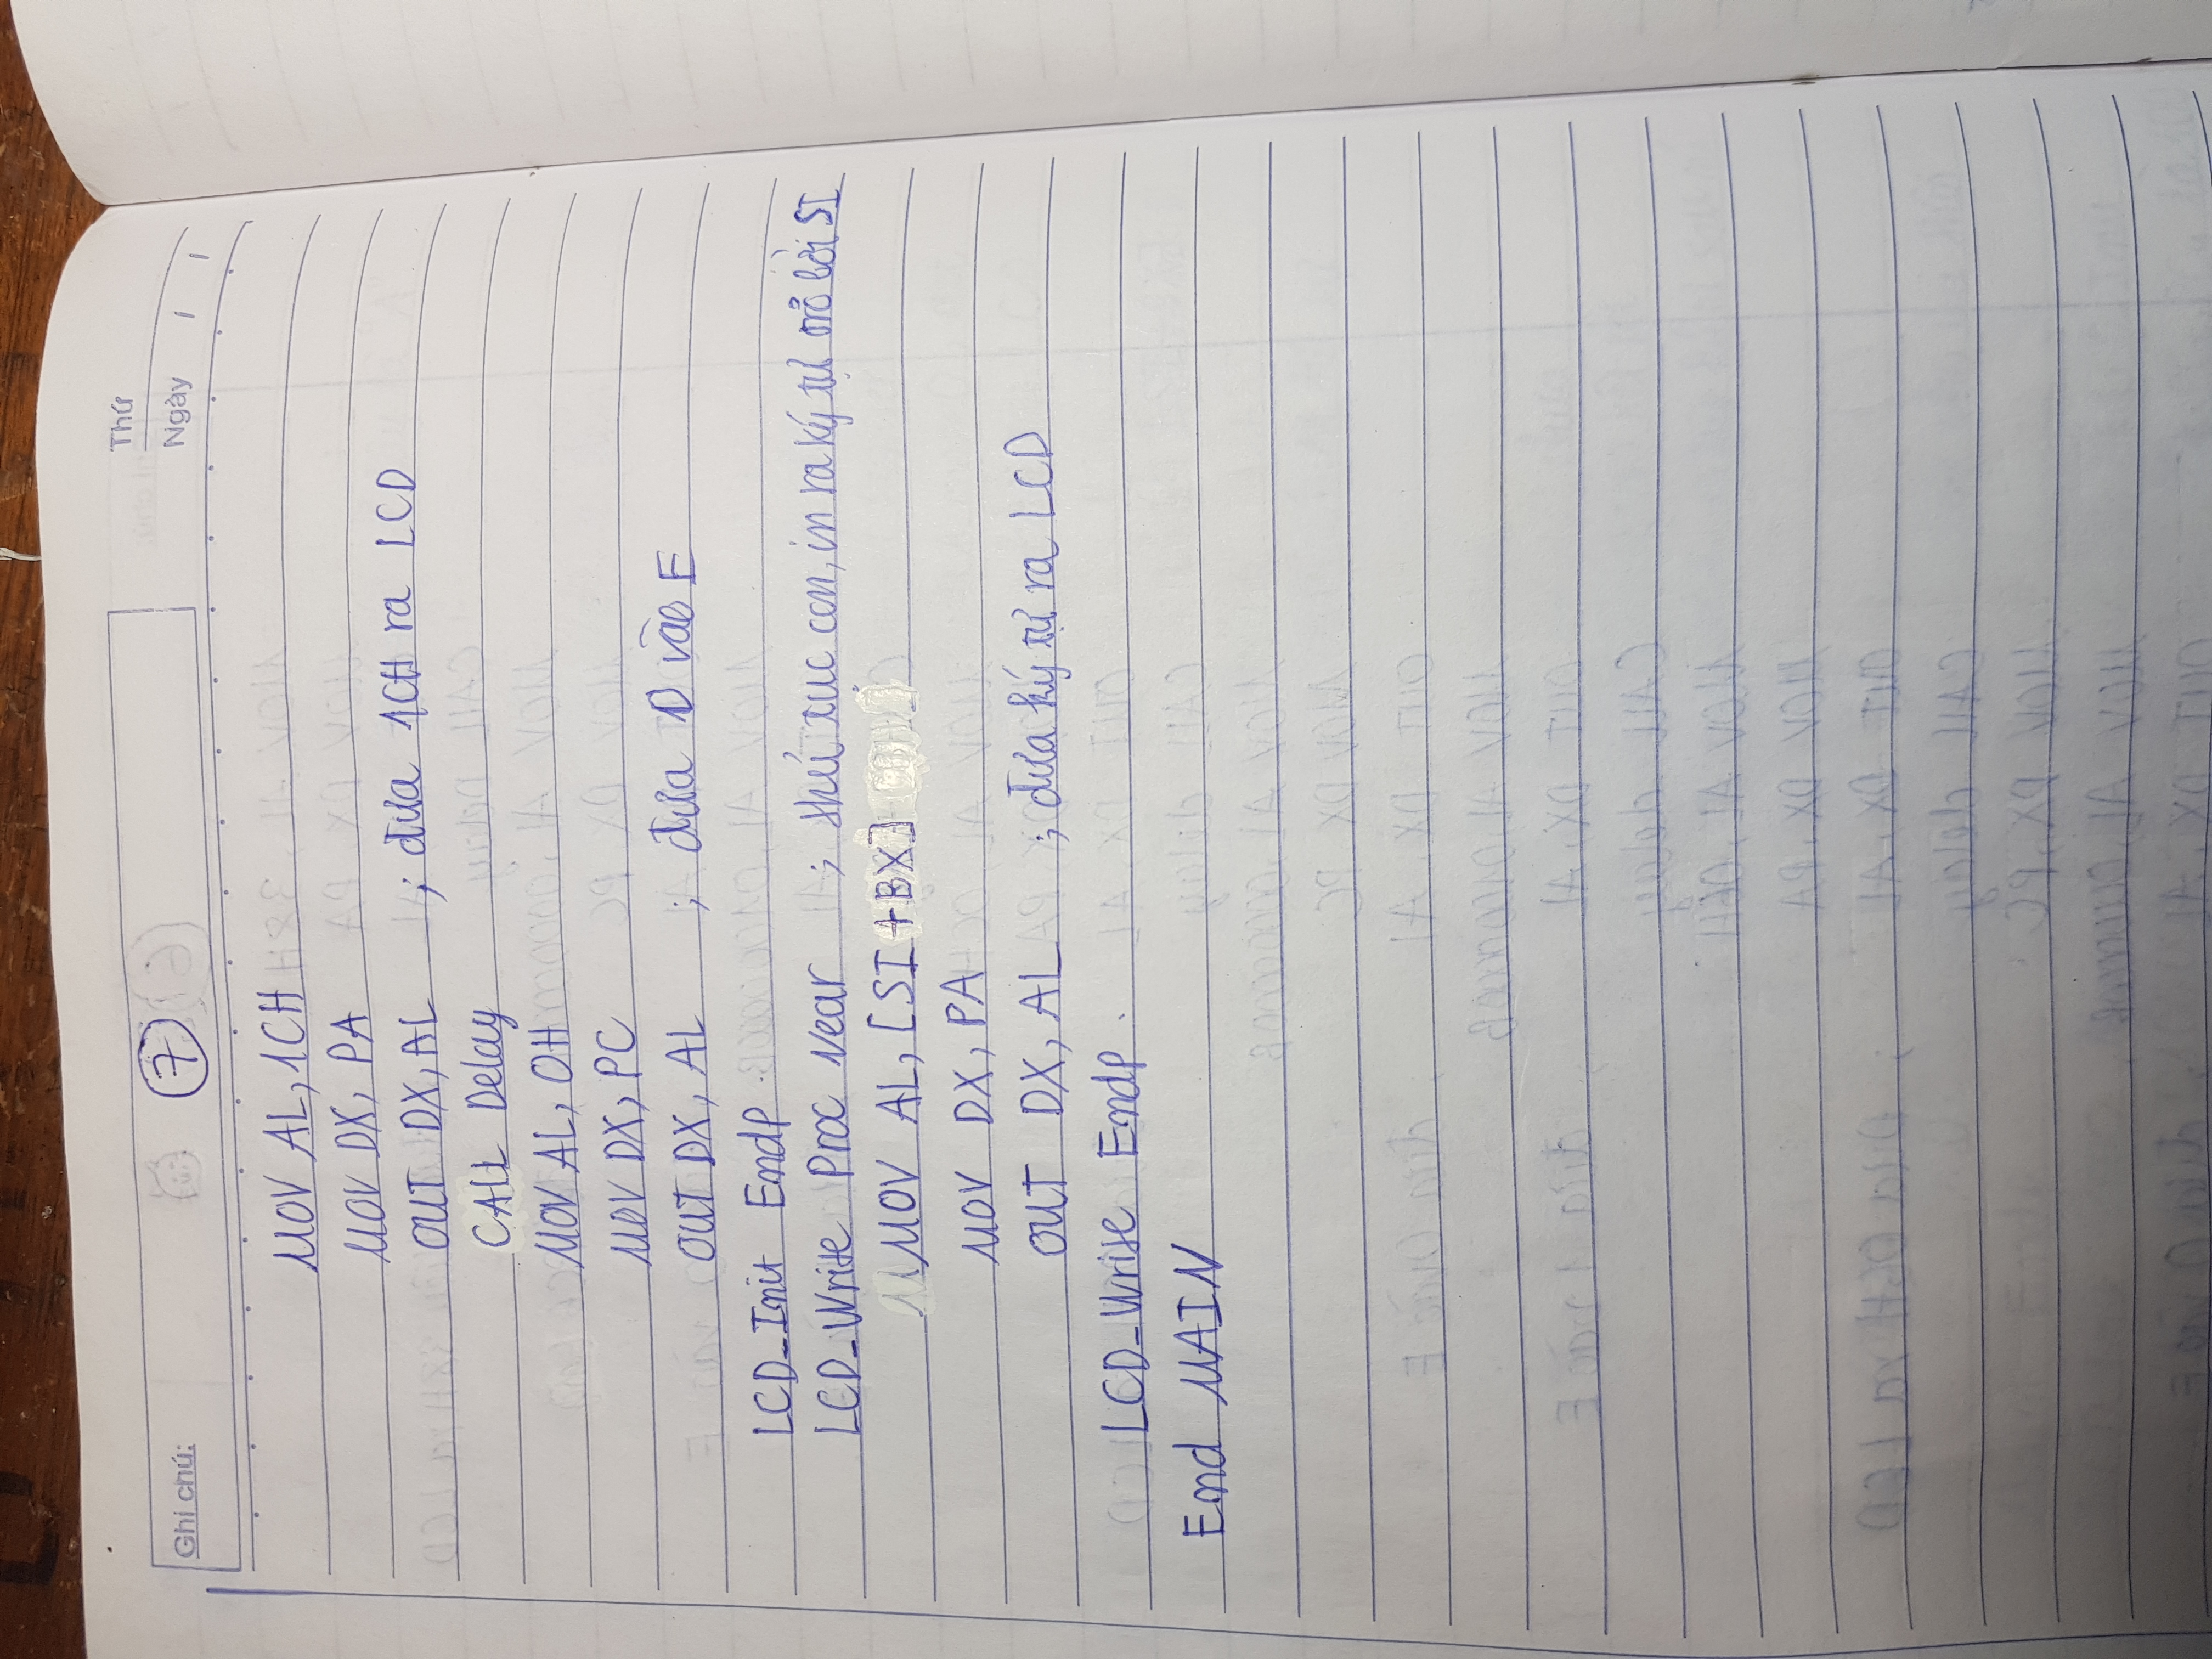 Thứ
Ghi chú: 7 Ngày / /
MOV AL, 1CH
MOV DX, PA
OUT DX, AL ; đưa 1CH ra LCD
CALL Delay
MOV AL, 0H
MOV DX, PC
OUT DX, AL ; đưa 0 vào E
LCD_Init Endp
LCD_Write Proc Near ; thủ tục con, in ra ký tự trỏ bởi SI
MOV AL, [SI+BX]
MOV DX, PA
OUT DX, AL ; đưa ký tự ra LCD
LCD_Write Endp
End MAIN